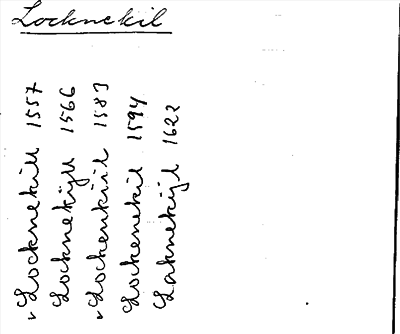 Locknekil
v Locknekill 1557
Locknekijll 1566
v Lockenkiil 1583
Lockenekil 1594
Laknekijl 1622